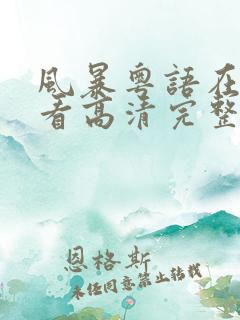 風暴粵語在
看高清完整
恩格斯
未经同意禁止转载